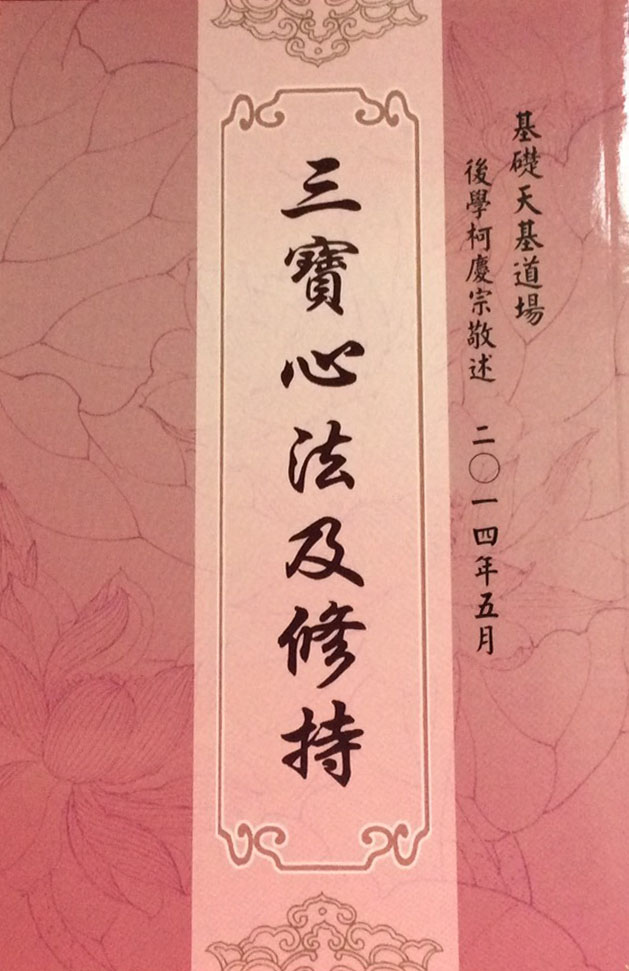 基礎天基道場
後學柯慶宗敬述 二〇一四年五月
三寶心法及修持